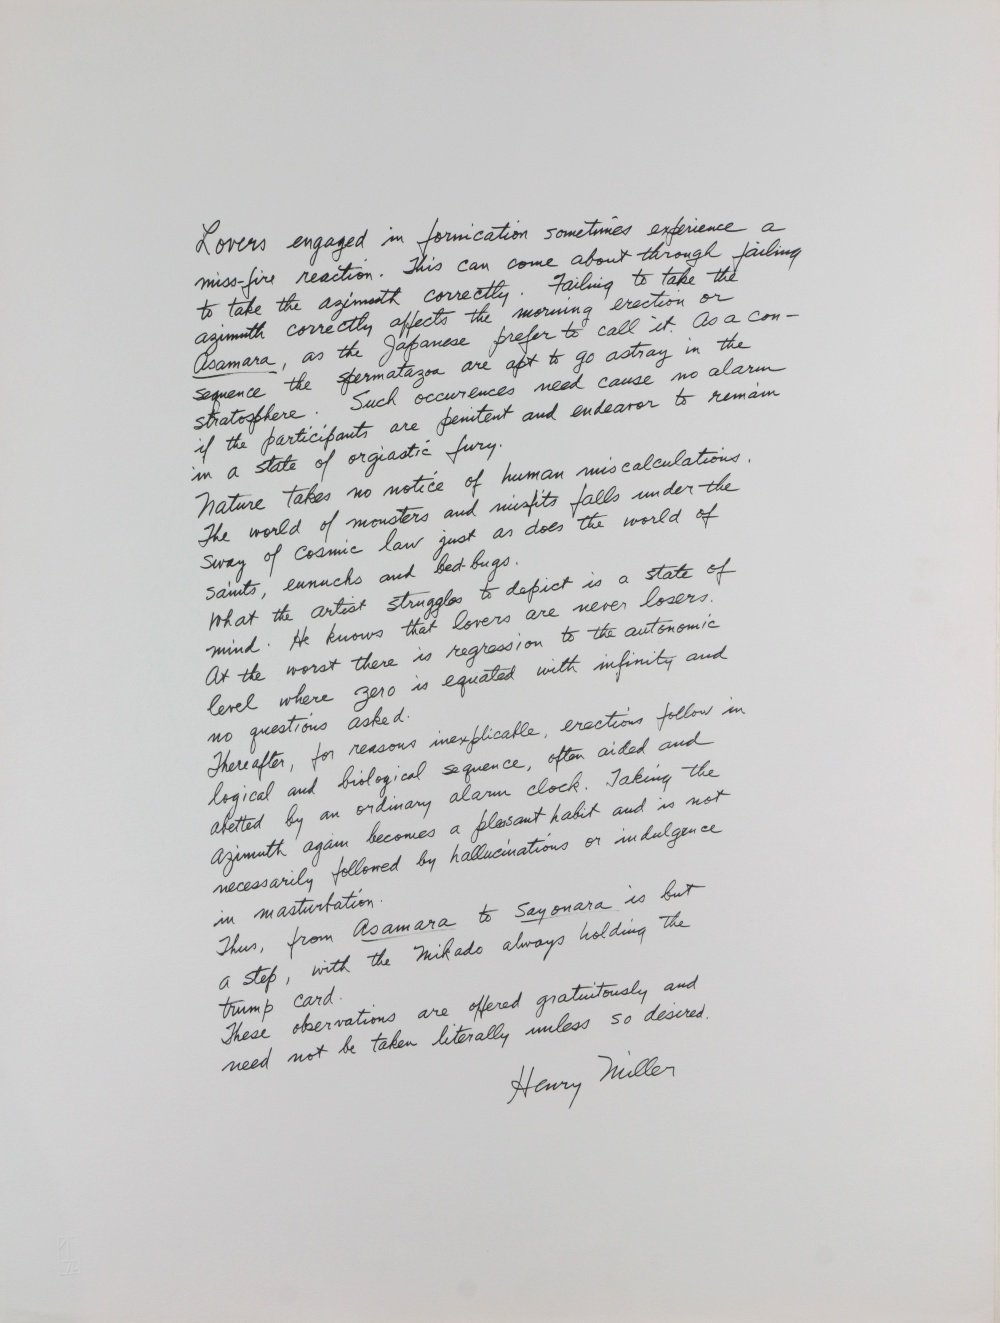 Lovers engaged in fornication sometimes experience a
miss-fire reaction. This can come about through failing
to take the azimuth correctly. Failing to take the
azimuth correctly affects the morning erection or
Asamara, as the Japanese prefer to call it. As a con-
sequence the spermatazoa are apt to go astray in the
stratosphere. Such occurences need cause no alarm
if the participants are penitent and endeavor to remain
in a state of orgiastic fury.
Nature takes no notice of human miscalculations.
The world of monsters and misfits falls under the
sway of cosmic law just as does the world of
saints, eunuchs and bed-bugs.
What the artist struggles to depict is a state of
mind. He knows that lovers are never losers.
At the worst there is regression to the autonomic
level where zero is equated with infinity and
no questions asked.
Thereafter, for reasons inexplicable, erections follow in
logical and biological sequence, often aided and
abetted by an ordinary alarm clock. Taking the
azimuth again becomes a pleasant habit and is not
necessarily followed by hallucinations or indulgence
in masturbation.
Thus, from Asamara to Sayonara is but
a step, with the Mikado always holding the
trump card.
These observations are offered gratuitously and
need not be taken literally unless so desired.
Henry Miller